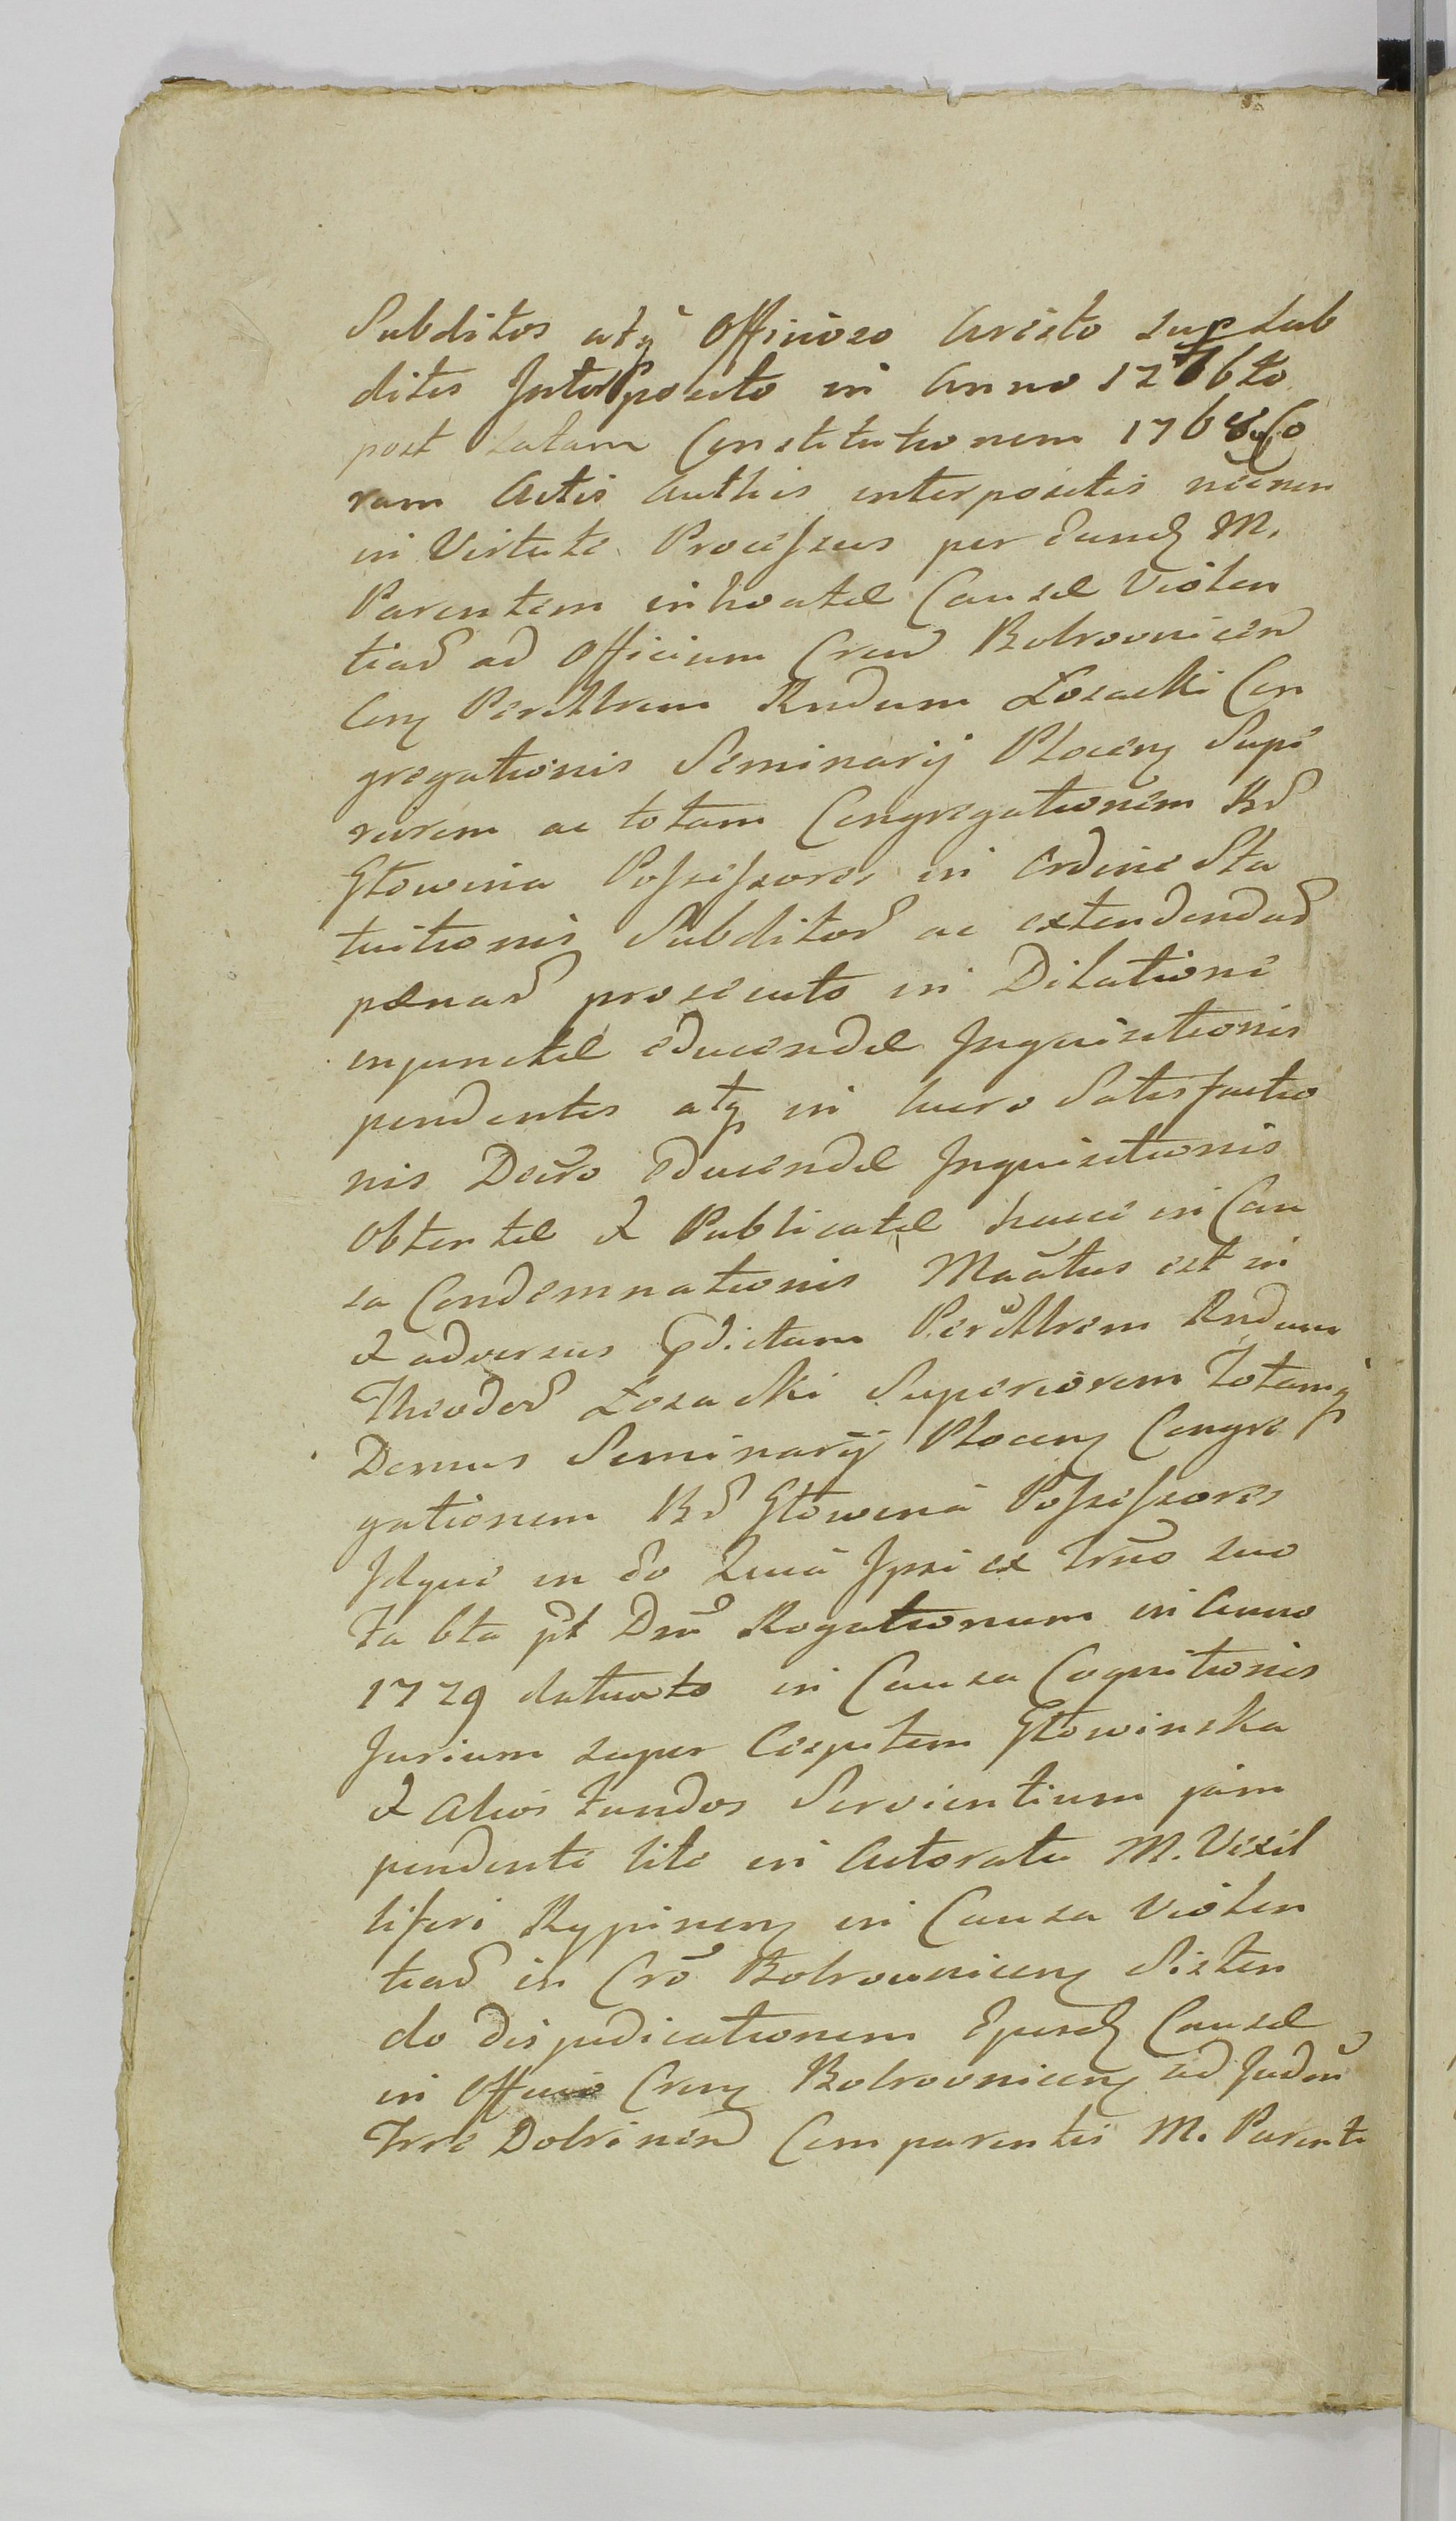 Subditos atq̃ Officioso Aresto sup Sub
ditis Interposito in Anno 1776to
post latam Constitutionem 1768 Co
ram Actis Authis interpositis necnon
in Virtute Processus per eund M.
Parentem inhoatæ Causæ Violen
tiar ad Officium Cren Bobrovnicen
Cen Perillrem Rndum Łosacki Con
gregationis Seminarij Plocen Supe
riorem ac totam Congregationem Br
Głowina Possessores in Ordine Sta
tuitionis Subditor ac extendendar
pænar prosecuto in Dilatione
injunctæ educendæ Inquisitionis
pendentis atq in lucro Satisfactio
nis Decro educendæ Inquisitionis
Obtentæ & Publicatæ hucce in Cau
sa Condemnationis Mactus est in
& adversus Edictum Perillrem Rndum
Theodor Łosacki Superiorem Totamq
Domus Seminarij Plocen Congre
gationem Br Głowina Possessores
Idque in eo Quia Ipsi ex Trno suo
Fa 6ta pt Dnm Rogationum in Anno
1779 statuto in Causa Cognitionis
Jurium super Cespitem Głowinska
& Alios Fundos Servientium jam
pendente lite in Actoratu M. Vexil
liferi Rypinen in Causa Violen
tiar in Cro Bobrovnicen Sisten
do disjudicationem Ejusd Causæ
in Officio Cren Bobrovnicen ad Judm
Trre Dobrinen Comparentis M. Parente